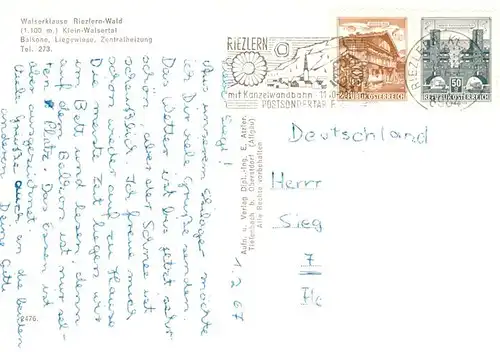 Walserklause Riezlern-Wald
(1.100 m.) Klein-Walsertal
Balkone, Liegewiese, Zentralheizung
Tel. 273.
1.2.67
Aus unserem Skilager möchte
ich Dir viele Grüße senden.
Das Wetter ist bis jetzt sehr
schön, aber der Schnee ist
scheußlich. Ich freue mich
schon wieder auf zu Hause
Die meiste Zeit liegen wir
im Bett und lesen, denn
auf dem Balkon ist nur sel-
ten Platz. Das Essen ist
ausgezeichnet.
Viele Grüße auch an die beiden
anderen Deine
2476.
Aufn. u. Verlag Dipl.-Ing. E. Atzler.
Tiefenbach b. Oberstdorf (Allgäu)
Alle Rechte vorbehalten
RIEZLERN
mit Kanzelwandbahn
POSTSONDERTARIF
REPUBLIK ÖSTERREICH
50
REPUBLIK ÖSTERREICH
RIEZLERN
Deutschland
Herrn
Sieg
7